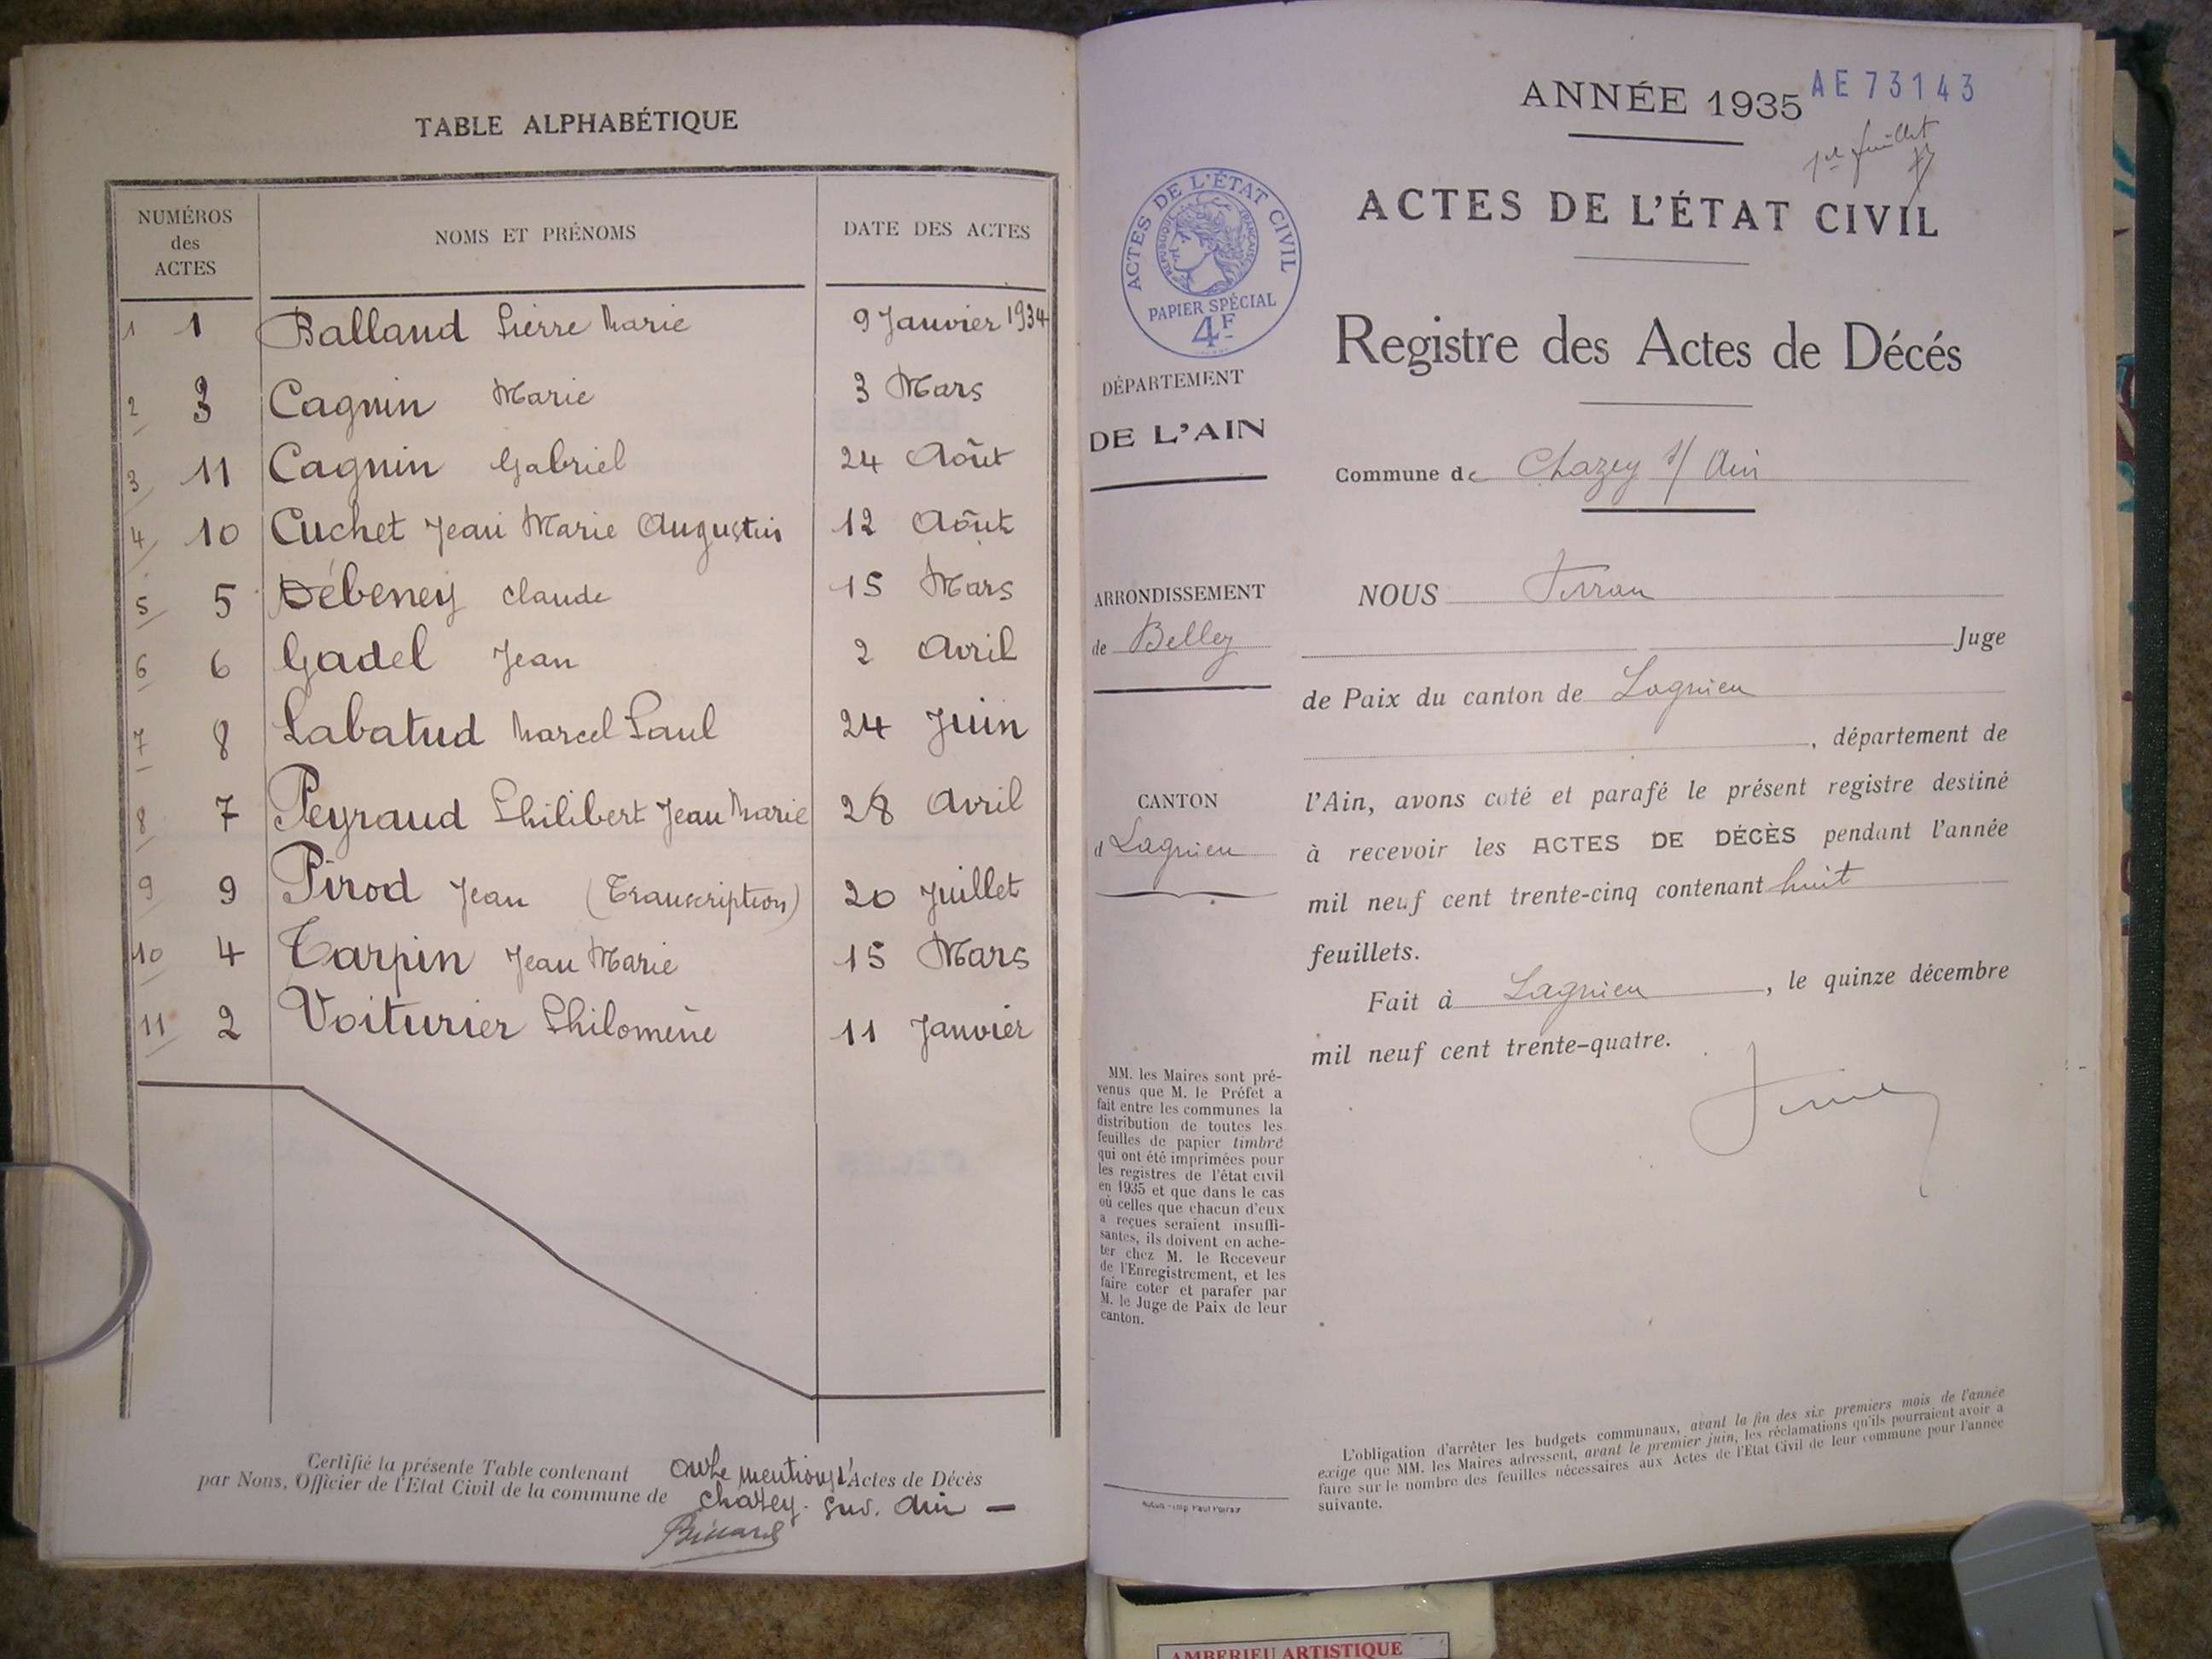 TABLE ALPHABÉTIQUE
NUMÉROS
des
ACTES
NOMS ET PRÉNOMS
DATE DES ACTES
1 1 Balland Pierre Marie 9 Janvier 1934
2 3 Cagnin Marie 3 Mars
3 11 Cagnin Gabriel 24 Août
4 10 Cuchet Jean Marie Augustin 12 Août
5 5 Débeney Claude 15 Mars
6 6 Gadel Jean 2 Avril
7 8 Labatud Marcel Paul 24 Juin
8 7 Peyraud Philibert Jean Marie 28 Avril
9 9 Pirod Jean (Transcription) 20 Juillet
10 4 Tarpin Jean Marie 15 Mars
11 2 Voiturier Philomène 11 Janvier
Certifié la présente Table contenant onze mentions d'Actes de Décès
par Nous, Officier de l'Etat Civil de la commune de Chazey. sur. Ain
ANNÉE 1935
AE 73143
1er feuillet
ACTES DE L'ÉTAT CIVIL
RÉPUBLIQUE FRANÇAISE
PAPIER SPÉCIAL
4F
ACTES DE L'ÉTAT CIVIL
Registre des Actes de Décés
DÉPARTEMENT
DE L'AIN
Commune de Chazey s/ Ain
ARRONDISSEMENT
de Belley
CANTON
d Lagnieu
MM. les Maires sont pré-
venus que M. le Préfet a
fait entre les communes la
distribution de toutes les
feuilles de papier timbré
qui ont été imprimées pour
les registres de l'état civil
en 1935 et que dans le cas
où celles que chacun d'eux
a reçues seraient insuffi-
santes, ils doivent en ache-
ter chez M. le Receveur
de l'Enregistrement, et les
faire coter et parafer par
M. le Juge de Paix de leur
canton.
NOUS
Juge
de Paix du canton de Lagnieu
, département de
l'Ain, avons coté et parafé le présent registre destiné
à recevoir les ACTES DE DÉCÈS pendant l'année
mil neuf cent trente-cinq contenant huit
feuillets.
Fait à Lagnieu, le quinze décembre
mil neuf cent trente-quatre.
L'obligation d'arrêter les budgets communaux, avant la fin des six premiers mois de l'année
exige que MM. les Maires adressent, avant le premier juin, les réclamations qu'ils pourraient avoir a
faire sur le nombre des feuilles nécessaires aux Actes de l'Etat Civil de leur commune pour l'année
suivante.
AMBERIEU ARTISTIQUE